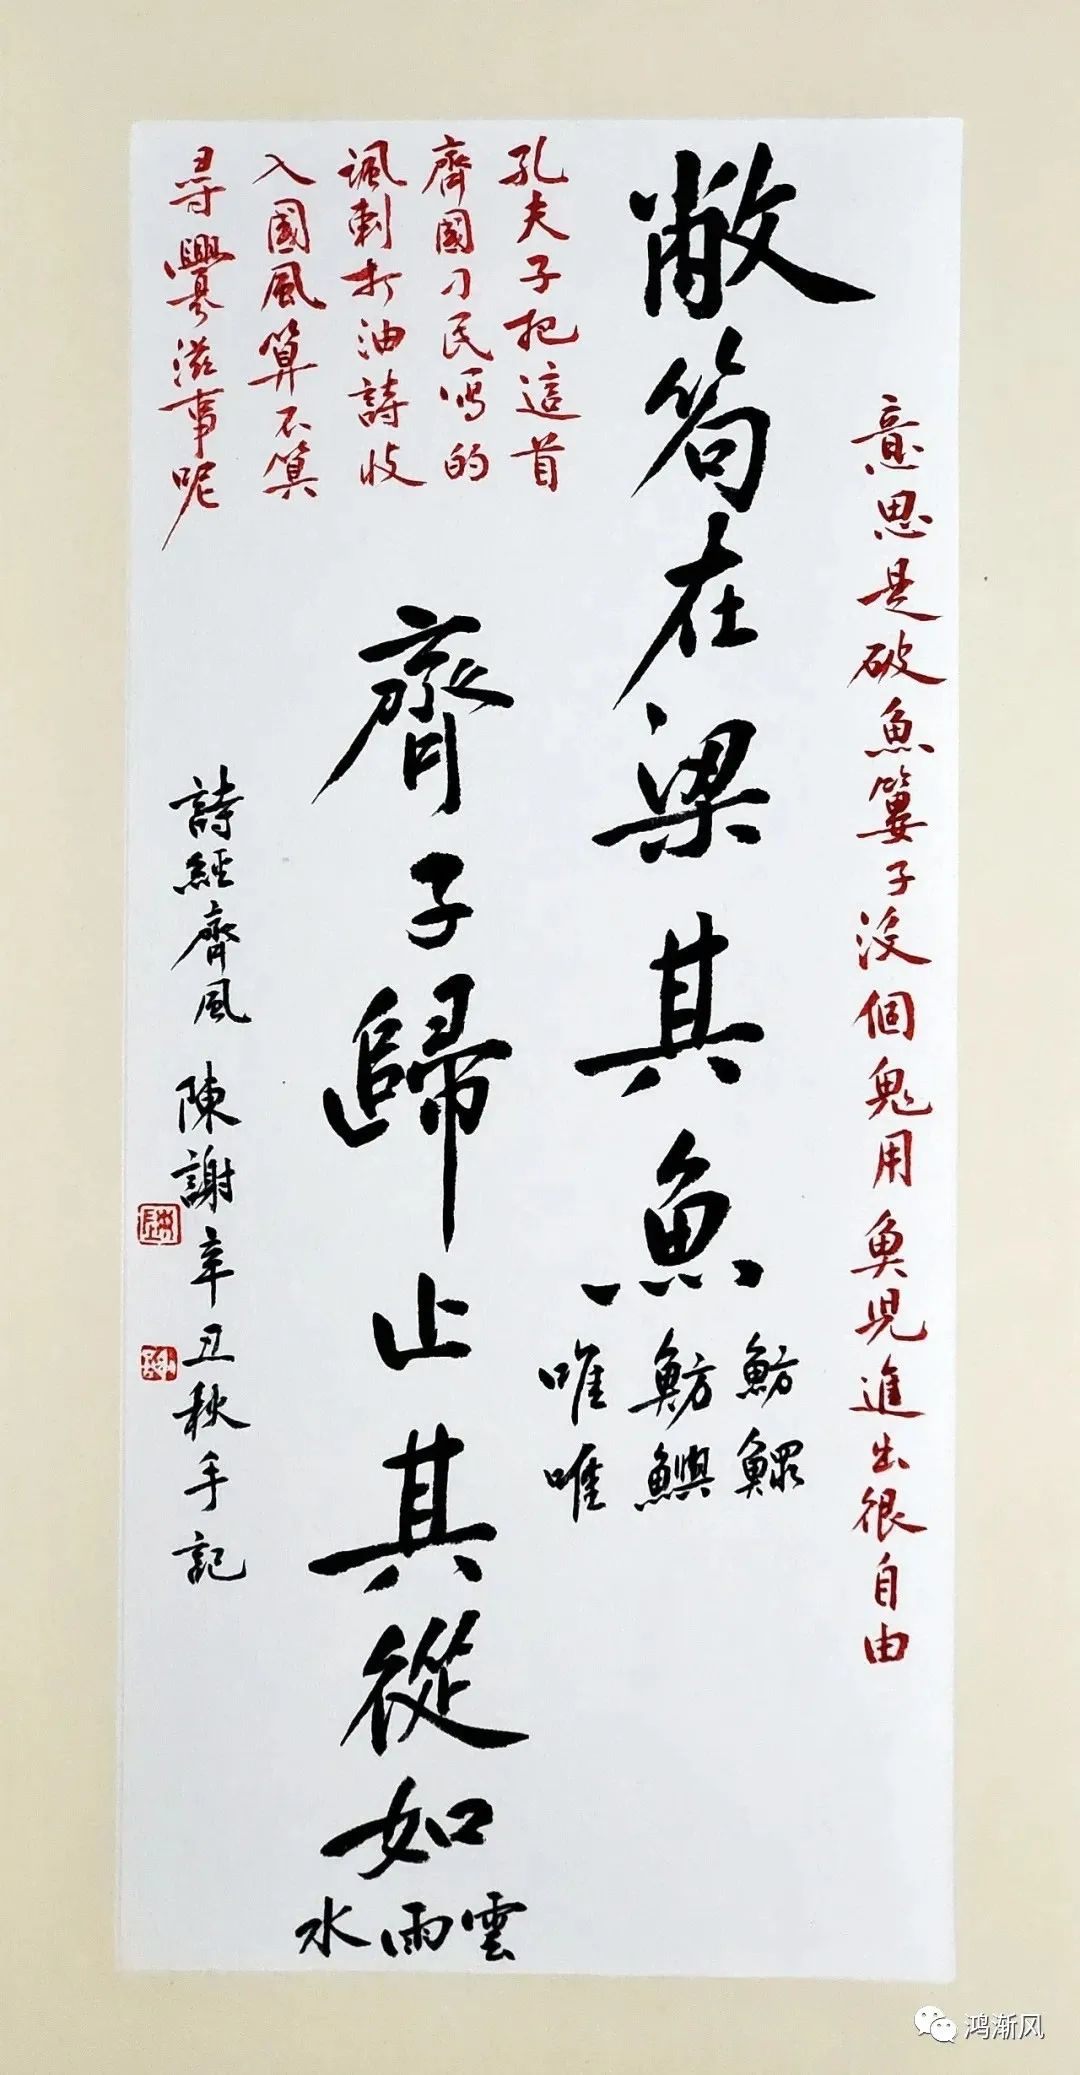 意思是破魚簍子沒個鬼用魚兒進出很自由
敝笱在梁其魚
魴鰥
魴鱮
唯唯
齊子歸止其從如
雲
雨
水
孔夫子把這首
齊國刁民寫的
諷刺打油詩收
入國風算不算
尋釁滋事呢
詩經齊風 陳謝辛丑秋手記
鸿渐风